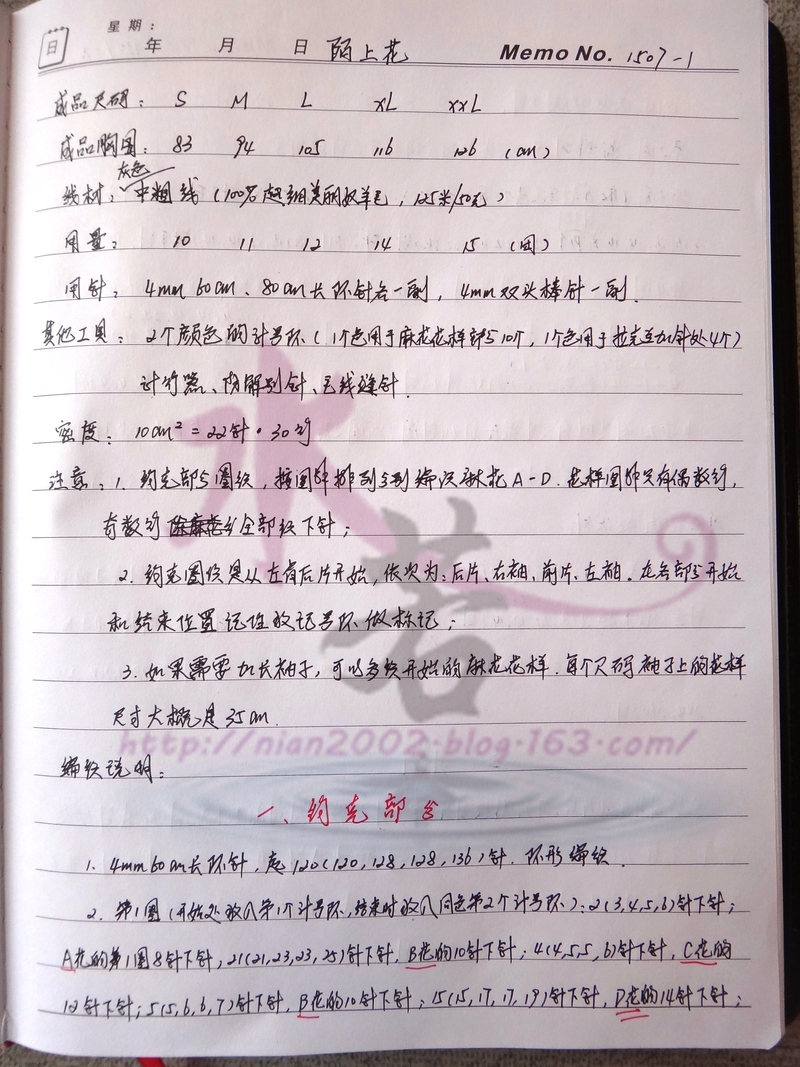 星期:
日 年 月 日 陌上花 Memo No. 1507-1
成品尺码: S M L XL XXL
成品胸围: 83 94 105 116 126 (cm)
灰色
线材: 中粗线(100%超细美丽奴羊毛, 125米/50克)
用量: 10 11 12 14 15 (团)
用针: 4mm 60cm、80cm长环针各一副, 4mm双头棒针一副.
其他工具: 2个颜色的计号环(1个色用于麻花花样部分10个, 1个色用于拉克兰加针处4个)
计行器、防解别针、毛线缝针.
密度: 10cm²=22针·30行
注意: 1. 约克部分圈织, 按图解排列分别编织麻花A-D. 花样图解只有偶数行,
奇数行 全部织下针;
2. 约克圈织是从左肩后片开始, 依次为: 后片、右袖、前片、左袖. 在各部分开始
和结束位置记住放记号环做标记;
3. 如果需要加长袖子, 可以多织开始的麻花花样. 每个尺码袖子上的花样
尺寸大概是35cm.
水若
http://nian2002.blog.163.com/
编织说明:
一、约克部分
1. 4mm60cm长环针, 起120(120, 128, 128, 136)针. 环形编织.
2. 第1圈(开始处放入第1个计号环, 结束时放入同色第2个计号环): 2(3,4,5,6)针下针;
A花的第1圈8针下针; 21(21,23,23,25)针下针, B花的10针下针; 4(4,5,5,6)针下针, C花的
12针下针; 5(5,6,6,7)针下针, B花的10针下针; 15(15,17,17,19)针下针, D花的14针下针;